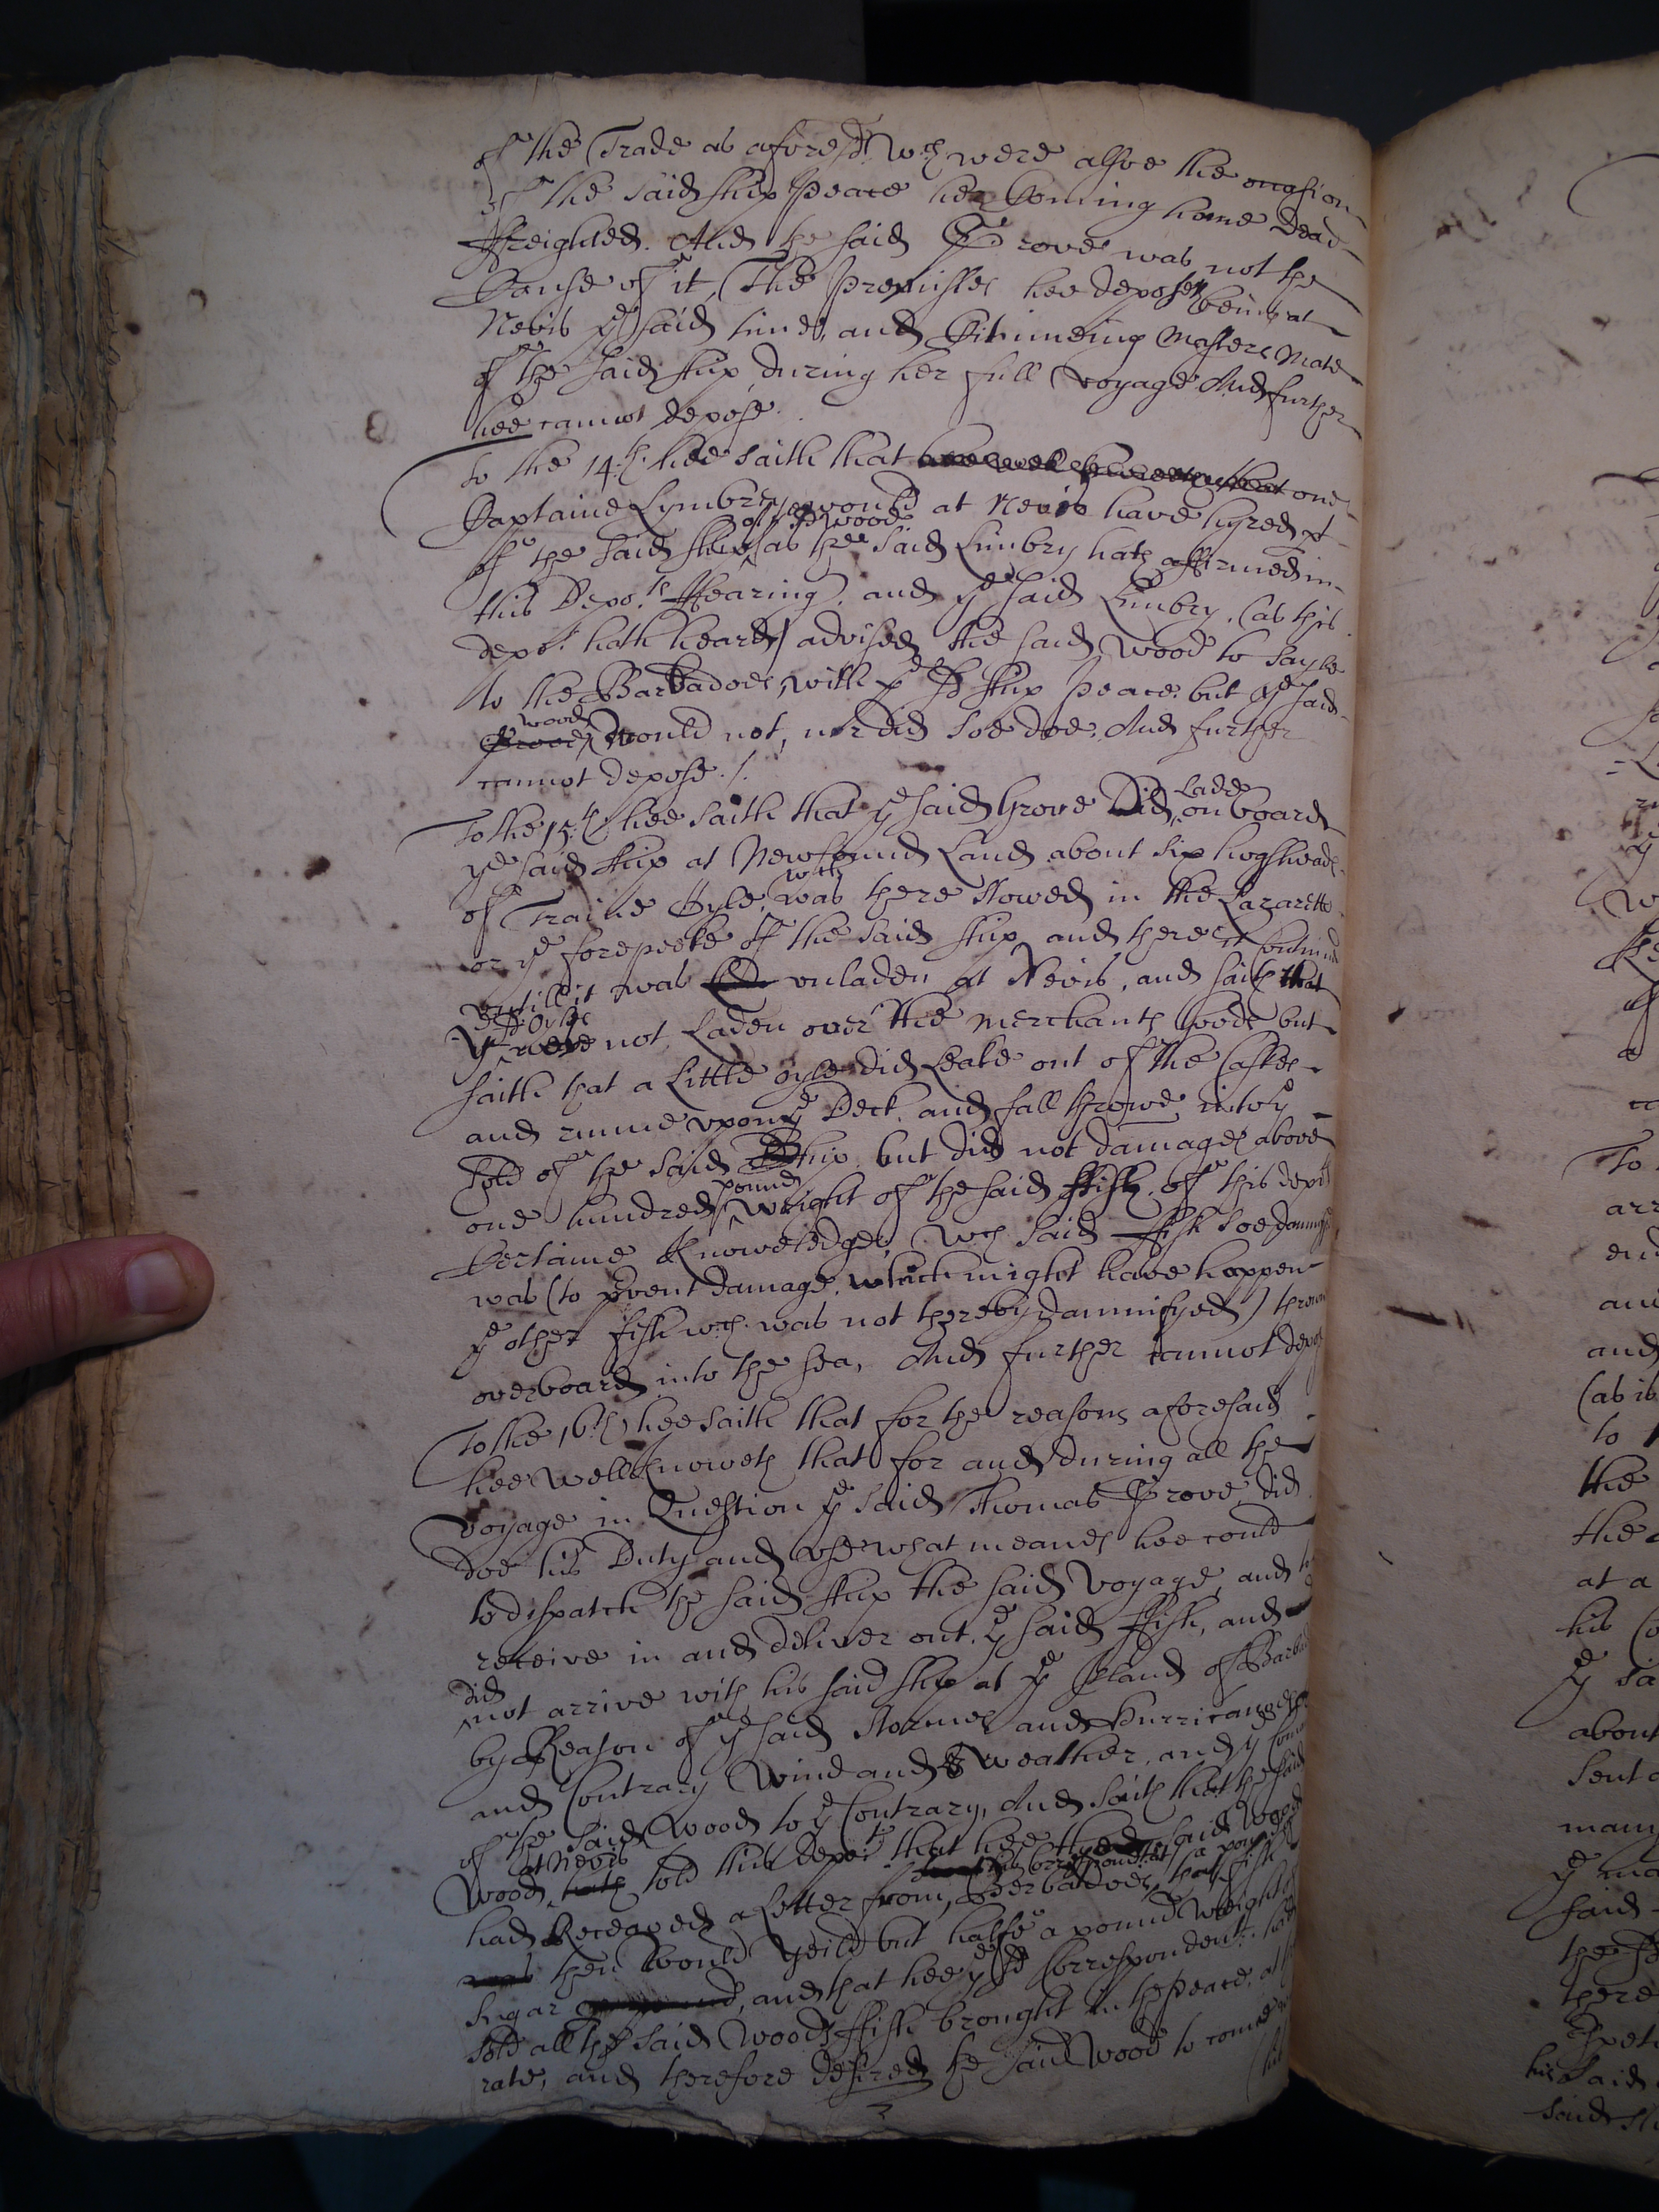 of the Trade as aforesd. wch were alsoe the occasion
of the said ship Peace her Comeing home dead
ffreighted. And the said Grove was not the
Cause of it, The Premisses hee deposeth being at
Nevis ye said time, and Continueing Masters Mate
of the said ship during her full voyage And further
hee cannot depose.
To the 14th. hee saith that one
Captaine Lymbry would at Nevis have hyred pt
of the said ship of ye sd wood as the said Limbry hath affirmed in
this Depots. Hearing, and ye said Limbry, (as this
depot. hath heard) advised the said Wood to sayle
to the Barbadoes, with ye sd ship Peace. but ye said
wood would not, nor did soe doe. And further
cannot depose./.
To the 15th hee saith that ye said Grove Did Lade on board
ye said ship at Newfound Land about six hogsheads
of Traine Oyle, wch was there stowed in the Lazaretto
or ye forepeeke of the said ship and there it Continued
untill it was unladen at Nevis, and saith that
ye sd Oyle were not Laden over the Merchants goods but
saith that a Little oyle did Leake out of the Caskes
and runne upon ye Deck, and fall throwe into ye
Hold of the said ship, but did not damage above
one hundred pounds weight of the said ffish, of this depots
Certaine Knowledge, wch said ffish soe damnifyed
was (to pvent damage, which might have happen
ye other fish wch. was not thereby damnifyed) throwne
overboard into the sea, And further cannot depose
To the 16th hee saith that for the reasons aforesaid
hee well knoweth that for and during all the
voyage in Question ye said Thomas Grove did
doe his Duty and use what meanes hee could
to dispatch the said ship the said voyage, and to
receive in and deliver out ye said ffish, and
did not arrive with his said ship at ye Island of Barbad
by Reason of ye said stormes and Hurricanes
and Contrary Wind and weather, and ye
of the said Wood to ye Contrary, And saith that the said
Wood at Nevis told this depot. that hee the said Wood
had Received a Letter from his correspondent at Berbadoes, that a pound of fish
then would yeild but halfe a pound weight of
sugar, and that hee ye sd Correspondent had
sold all the said Woods ffish brought in the Peace, at
rate, and therefore desired the said Wood to come